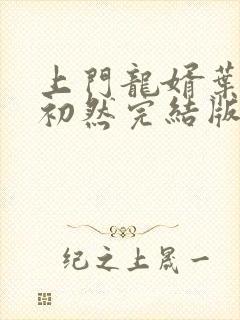 上門龍婿葉
初然完結版
纪之上晟一